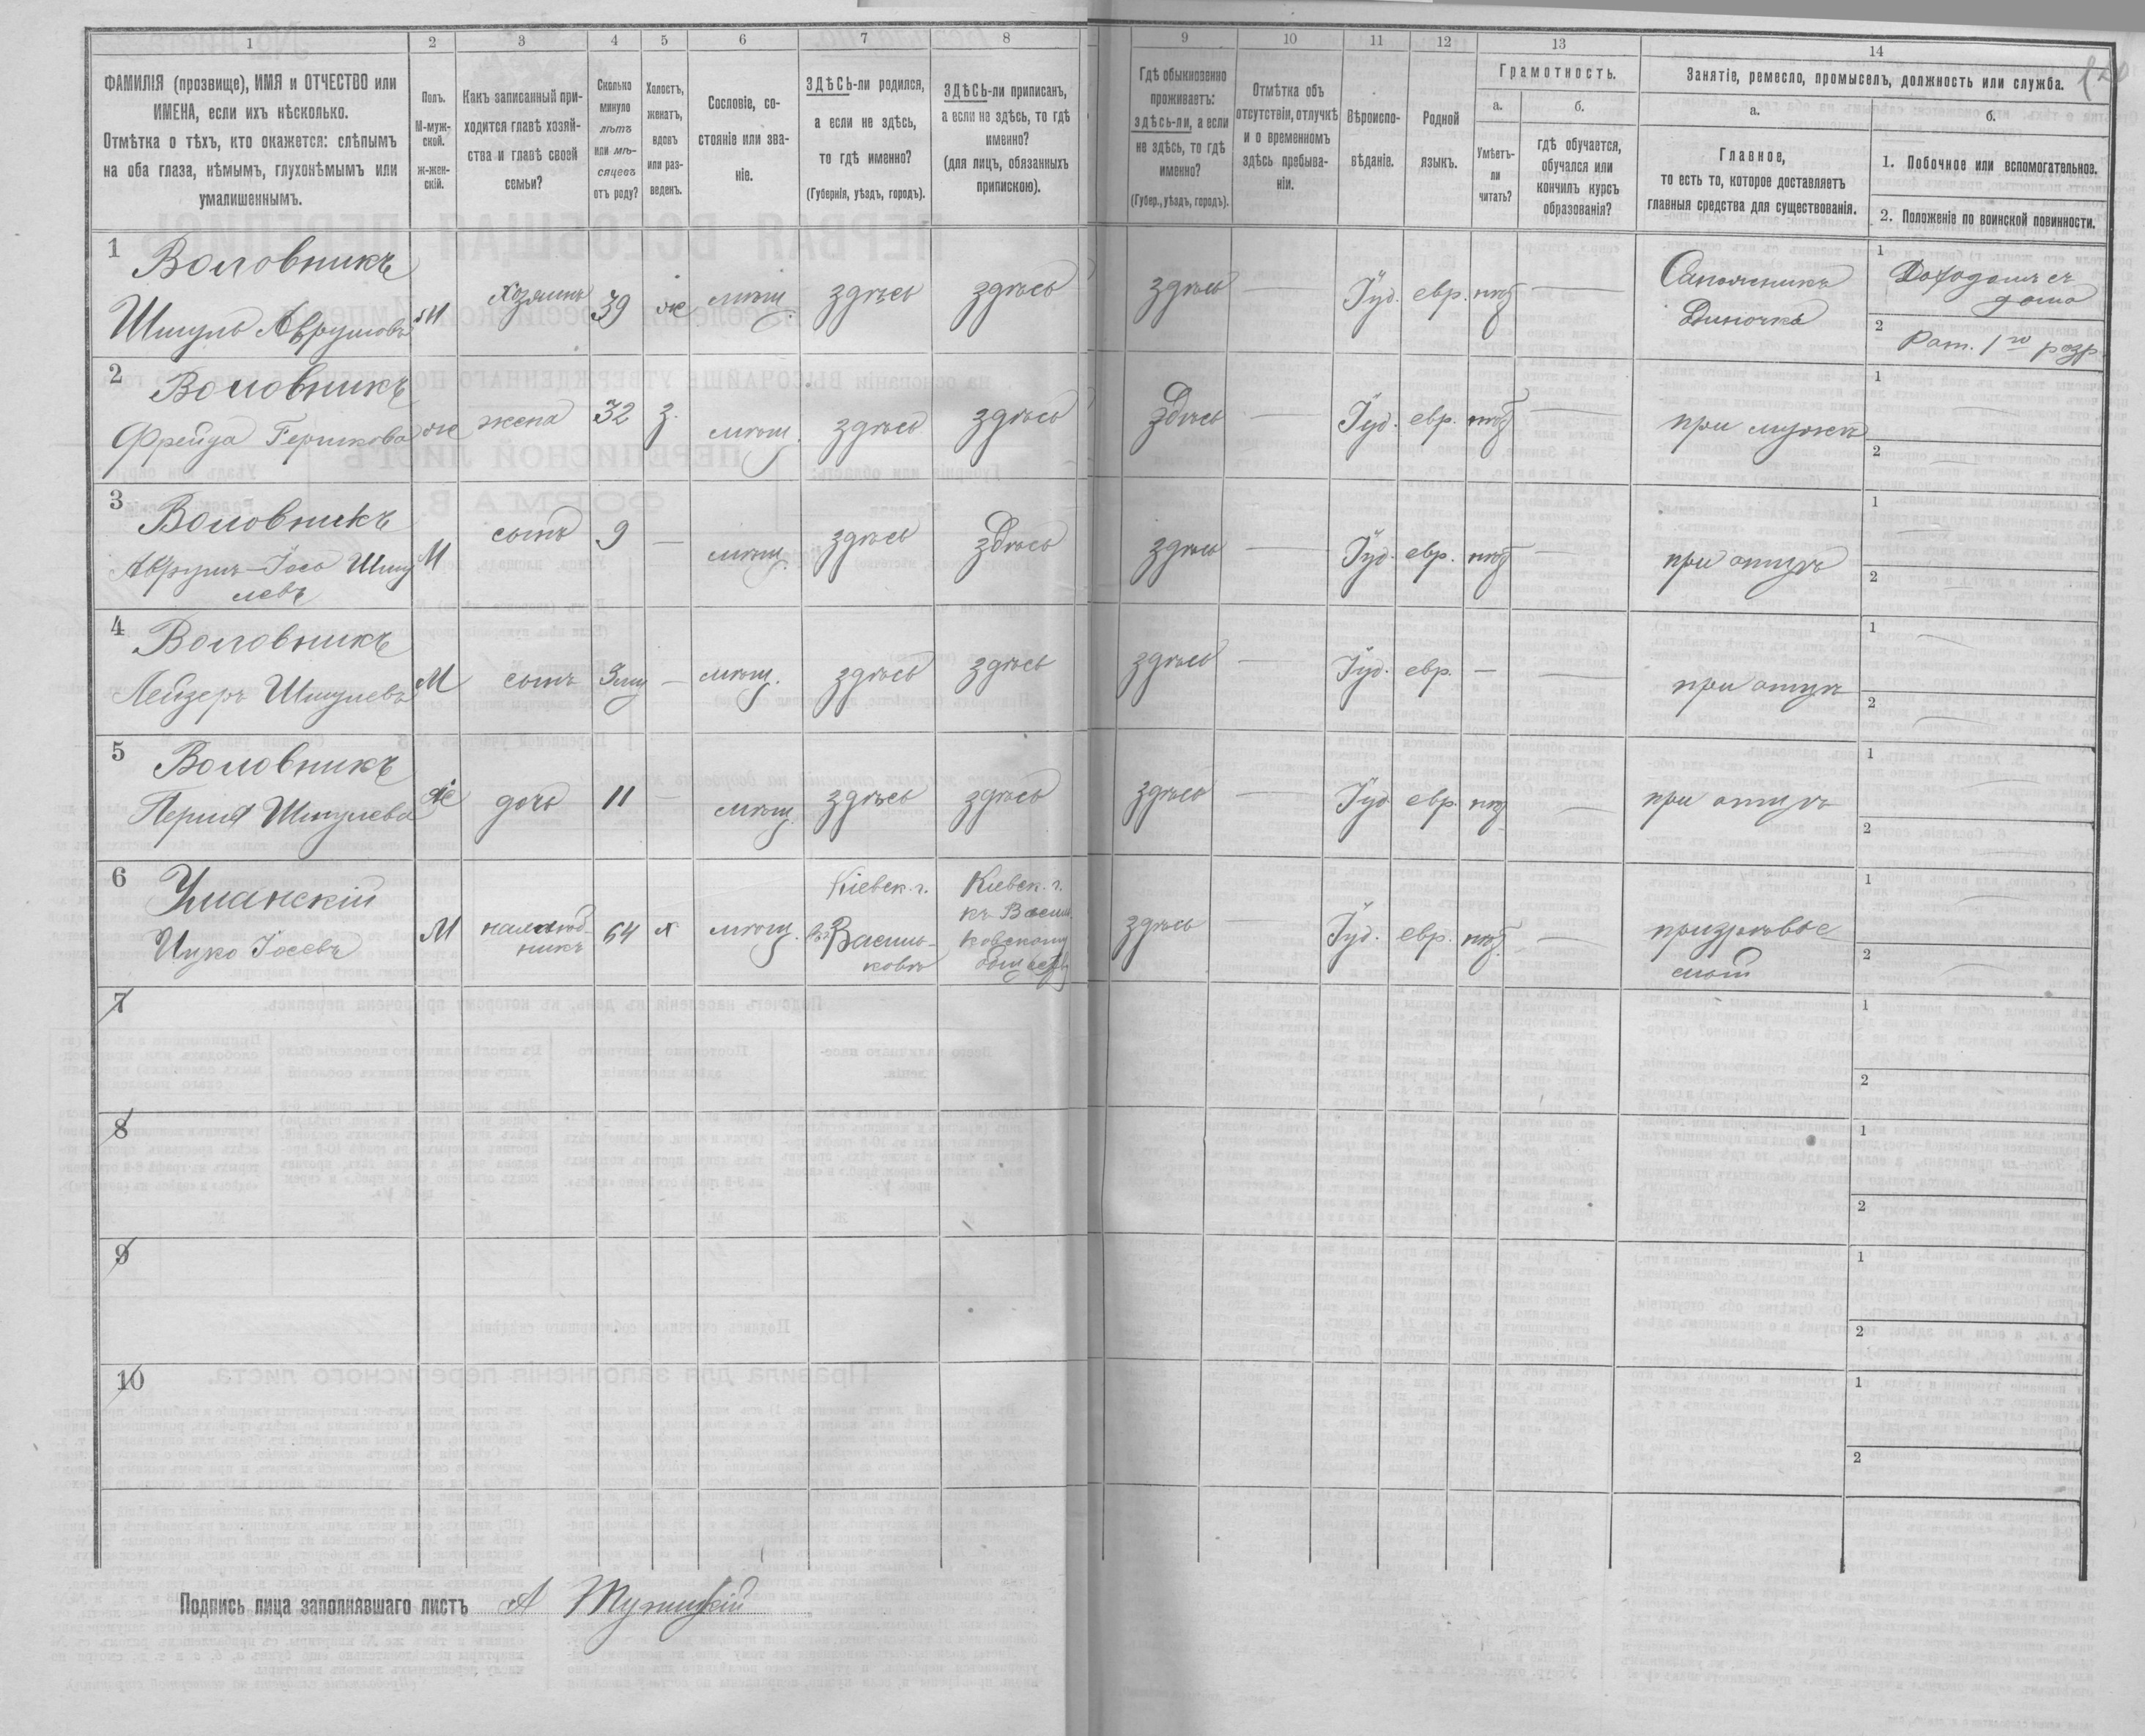 1 2 3 4 5 6 7 8 9 10 11 12 13 14
ФАМИЛІЯ (прозвище), ИМЯ и ОТЧЕСТВО или
ИМЕНА, если ихъ нѣсколько.
Отмѣтка о тѣхъ, кто окажется: слѣпымъ
на оба глаза, нѣмымъ, глухонѣмымъ или
умалишеннымъ.
Полъ.
М-муж-
ской.
ж-жен-
скій.
Какъ записанный при-
ходится главѣ хозяй-
ства и главѣ своей
семьи?
Сколько
минуло
лѣтъ
или мѣ-
сяцевъ
отъ роду?
Холостъ,
женатъ,
вдовъ
или раз-
веденъ.
Сословіе, со-
стояніе или зва-
ніе.
ЗДѢСЬ-ли родился,
а если не здѣсь,
то гдѣ именно?
(Губернія, уѣздъ, городъ).
ЗДѢСЬ-ли приписанъ,
а если не здѣсь, то гдѣ
именно?
(для лицъ, обязанныхъ
припискою).
Гдѣ обыкновенно
проживаетъ:
здѣсь-ли, а если
не здѣсь, то гдѣ
именно?
(Губер., уѣздъ, городъ).
Отмѣтка объ
отсутствіи, отлучкѣ
и о временномъ
здѣсь пребыва-
ніи.
Вѣроиспо-
вѣданіе.
Родной
языкъ.
Грамотность.
а.
Умѣетъ-
ли
читать?
б.
гдѣ обучается,
обучался или
кончилъ курсъ
образованія?
Занятіе, ремесло, промыселъ, должность или служба.
а.
Главное,
то есть то, которое доставляетъ
главныя средства для существованія.
б.
1. Побочное или вспомогательное.
2. Положеніе по воинской повинности.
1 Воловникъ
Шмуль Аврумовъ М Хозяинъ 39 ж мѣщ. здѣсь здѣсь здѣсь — Іуд. евр. —
Сапожникъ
Одиночка
1 Доходомъ съ
дома
2 Рат. 1го разр.
2 Воловникъ
Фрейда Гершкова ж жена 32 з. мѣщ. здѣсь здѣсь здѣсь — Іуд. евр. — при мужѣ
1 —
2 —
3 Воловникъ
Аврумъ-Іось Шму
левъ М сынъ 9 — мѣщ. здѣсь здѣсь здѣсь — Іуд. евр. — при отцѣ
1 —
2 —
4 Воловникъ
Лейзеръ Шмулевъ М сынъ — мѣщ. здѣсь здѣсь здѣсь — Іуд. евр. — — при отцѣ
1 —
2 —
5 Воловникъ
Перля Шмулева ж дочь 11 — мѣщ. здѣсь здѣсь здѣсь — Іуд. евр. — при отцѣ
1 —
2 —
6 Уманскій
Ицко Іосевъ М 64 мѣщ.
Кіевск. г.
Василь-
ковъ
Кіевск. г.
къ Василь
ковскому
обществу
здѣсь — Іуд. евр. —
1 —
2 —
7 1
2
8 1
2
9 1
2
10 1
2
Подпись лица заполнявшаго листъ А